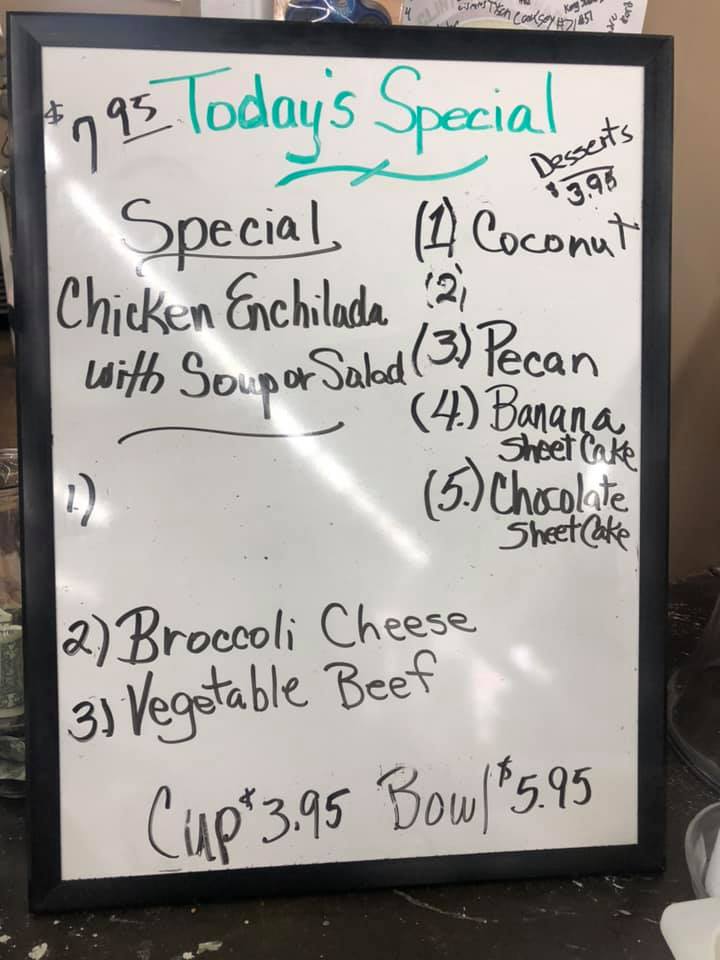 $7.95 Today's Special
Desserts
$3.95
Special
Chicken Enchilada
with Soup or Salad
(1) Coconut
(2)
(3.) Pecan
(4.) Banana
Sheet Cake
(5.) Chocolate
Sheet Cake
1.)
2) Broccoli Cheese
3) Vegetable Beef
Cup $3.95 Bowl $5.95